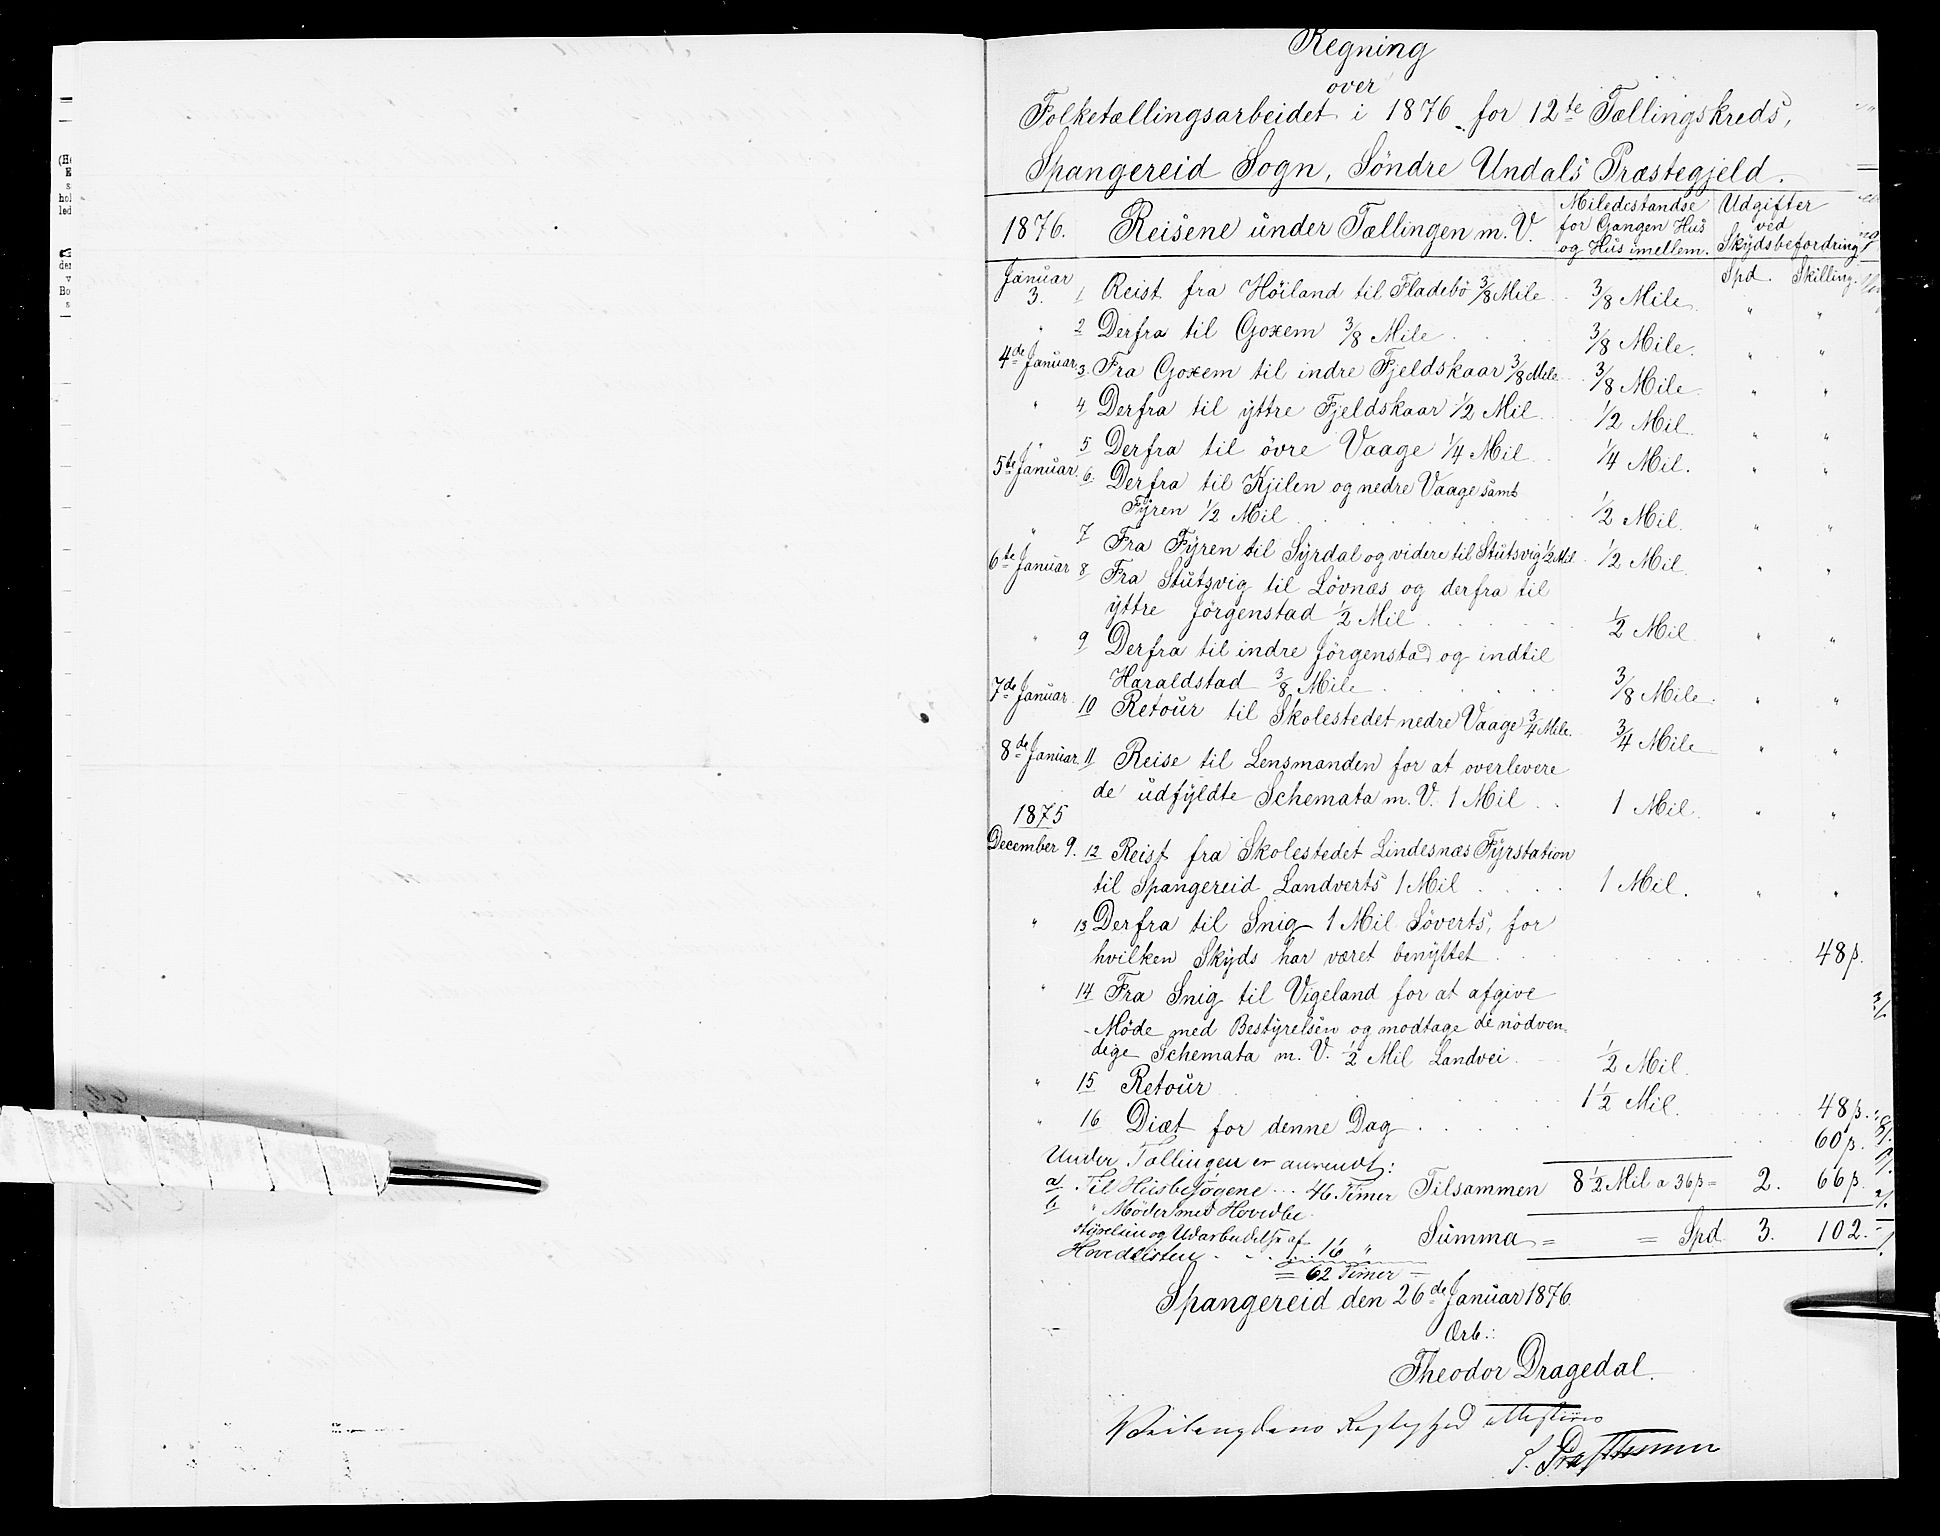 Regning
over
Folketællingsarbeidet i 1876 for 12te Tællingskreds,
Spangereid Sogn, Söndre Undals Præstegjeld.
1876. Reisene under Tællingen m. V. Miledestandse for Gangen Hus og Hus imellem. Udgifter ved Skydsbefordring
Spd. Skilling.
Januar 3. 1 Reist fra Höiland til Fladebö 3/8 Mile 3/8 Mile " "
" 2 Derfra til Goxem 3/8 Mile 3/8 Mile. " "
4de Januar 3. Fra Goxem til indre Fjeldskaar 3/8 Mile 3/8 Mile " "
" 4. Derfra til yttre Fjeldskaar 1/2 Mil 1/2 Mil " "
" 5 Derfra til övre Vaage 1/4 Mil 1/4 Mil. " "
5te Januar 6. Derfra til Kjilen og nedre Vaage samt
Fyren 1/2 Mil 1/2 Mil. " "
" 7 Fra Fyren til Syrdal og videre til Stutsvig 1/2 Mil 1/2 Mil " "
6te Januar 8 Fra Stutsvig til Lövnæs og derfra til
yttre Jörgenstad 1/2 Mil 1/2 Mil " "
" 9 Derfra til indre Jörgenstad og indtil
Haraldstad 3/8 Mile 3/8 Mile. " "
7de Januar 10 Retour til Skolestedet nedre Vaage 3/4 Mile. 3/4 Mile " "
8de Januar 11 Reise til Lensmanden for at overlevere
de udfyldte Schemata m. V. 1 Mil 1 Mil. " "
1875
December 9. 12 Reist fra Skolestedet Lindesnæs Fyrstation
til Spangereid Landverts 1 Mil 1 Mil. " "
" 13 Derfra til Snig 1 Mil Söverts, for
hvilken Skyds har været benyttet 48 ß.
" 14 Fra Snig til Vigeland for at afgive
Möde med Bestyrelsen og modtage de nödven-
dige Schemata m. V. 1/2 Mil Landvei 1/2 Mil.
" 15 Retour 1 1/2 Mil. 48 ß.
" 16 Diæt for denne Dag 60 ß.
Under Tællingen er anvendt:
a Til Husbesøgene 46 Timer Tilsammen 8 1/2 Mil a 36 ß = 2. 66 ß.
b " Møder med Hovedbe-
styrelsen og Udarbeidelse af
Hovedlisten 16 " Summa = = Spd 3. 102.
= 62 Timer =
Spangereid den 26de Januar 1876.
Ærb.:
Theodor Dragedal.